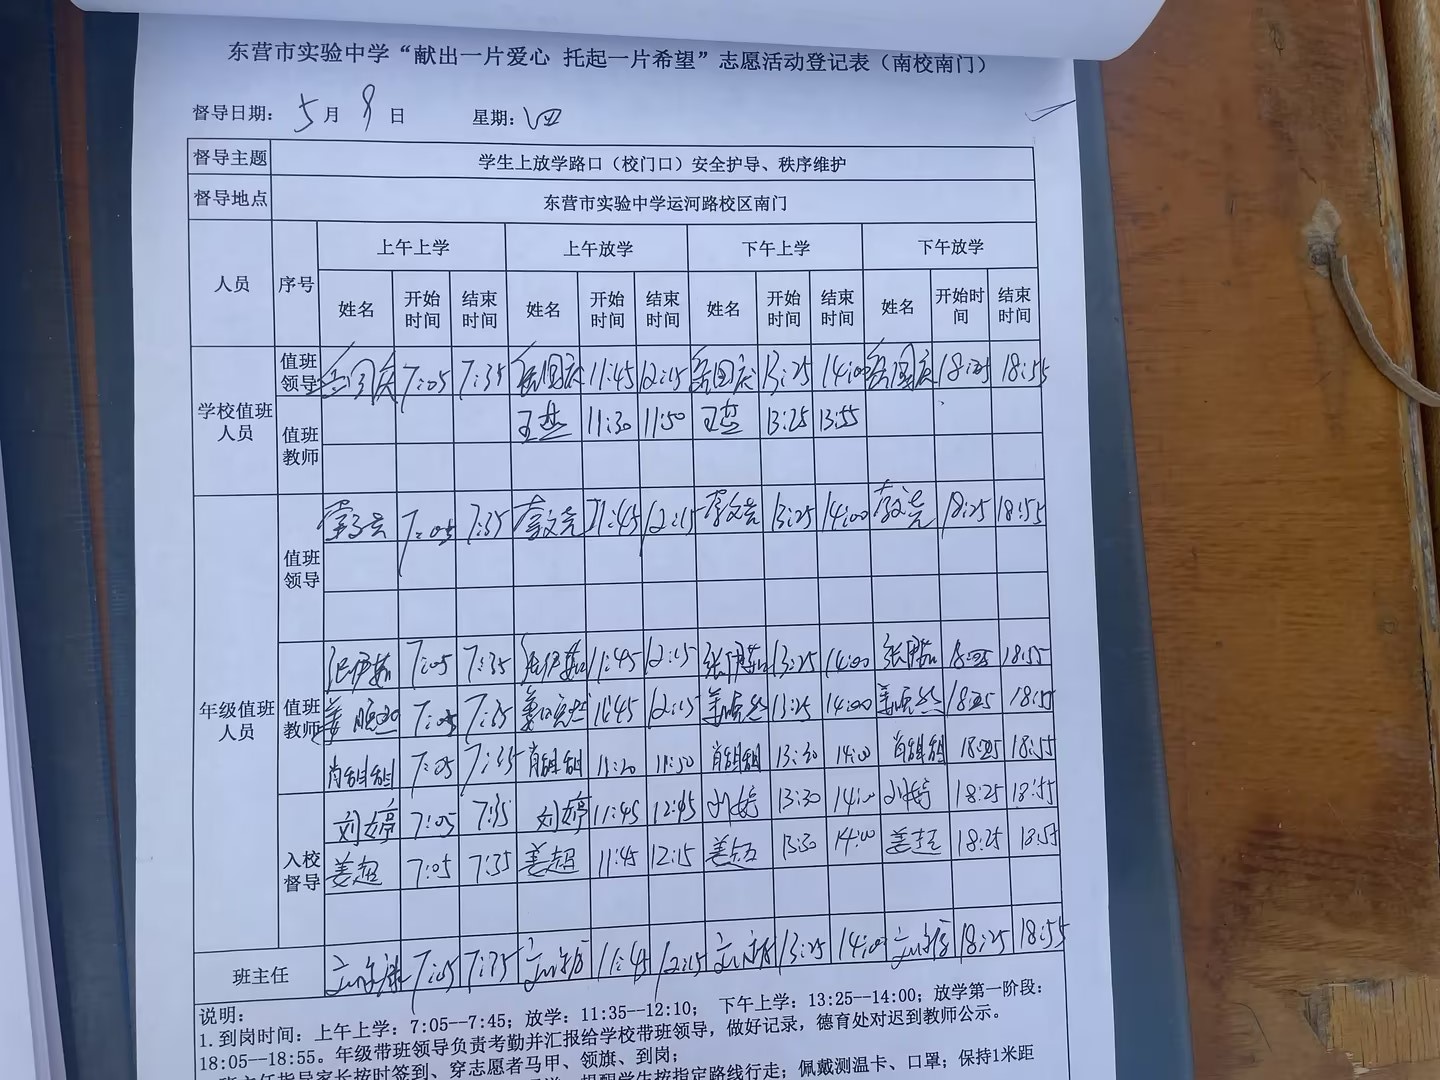 东营市实验中学“献出一片爱心 托起一片希望”志愿活动登记表（南校南门）
督导日期： 5 月 8 日 星期：四
督导主题 学生上放学路口（校门口）安全护导、秩序维护
督导地点 东营市实验中学运河路校区南门
人员 序号 上午上学 上午放学 下午上学 下午放学
姓名 开始时间 结束时间 姓名 开始时间 结束时间 姓名 开始时间 结束时间 姓名 开始时间 结束时间
学校值班人员 值班领导 岳国庆 7:05 7:35 岳国庆 11:45 12:15 岳国庆 13:25 14:00 岳国庆 18:25 18:55
值班教师 王楚 11:30 11:50 王楚 13:25 13:55
年级值班人员 值班领导 7:05 7:35 李文亮 11:45 12:15 李文亮 13:25 14:00 李文亮 18:25 18:55
值班教师 张伊茹 7:05 7:35 张伊茹 11:45 12:15 张伊茹 13:25 14:00 张伊茹 18:25 18:55
姜晓 7:05 7:35 姜晓然 11:45 12:15 姜晓然 13:25 14:00 姜晓然 18:25 18:55
肖甜甜 7:05 7:35 肖甜甜 11:20 11:50 肖甜甜 13:30 14:00 肖甜甜 18:25 18:55
入校督导 刘婷 7:05 7:35 刘婷 11:45 12:45 刘婷 13:30 14:00 刘婷 18:25 18:55
姜超 7:05 7:35 姜超 11:45 12:15 姜超 13:30 14:00 姜超 18:25 18:55
班主任 7:05 7:35 11:45 12:15 13:25 14:00 18:25 18:55
说明：
1.到岗时间：上午上学：7:05--7:45；放学：11:35--12:10； 下午上学：13:25--14:00；放学第一阶段：
18:05--18:55。年级带班领导负责考勤并汇报给学校带班领导，做好记录，德育处对迟到教师公示。
班主任指导家长按时签到、穿志愿者马甲、领旗、到岗；
提醒学生按指定路线行走；佩戴测温卡、口罩；保持1米距